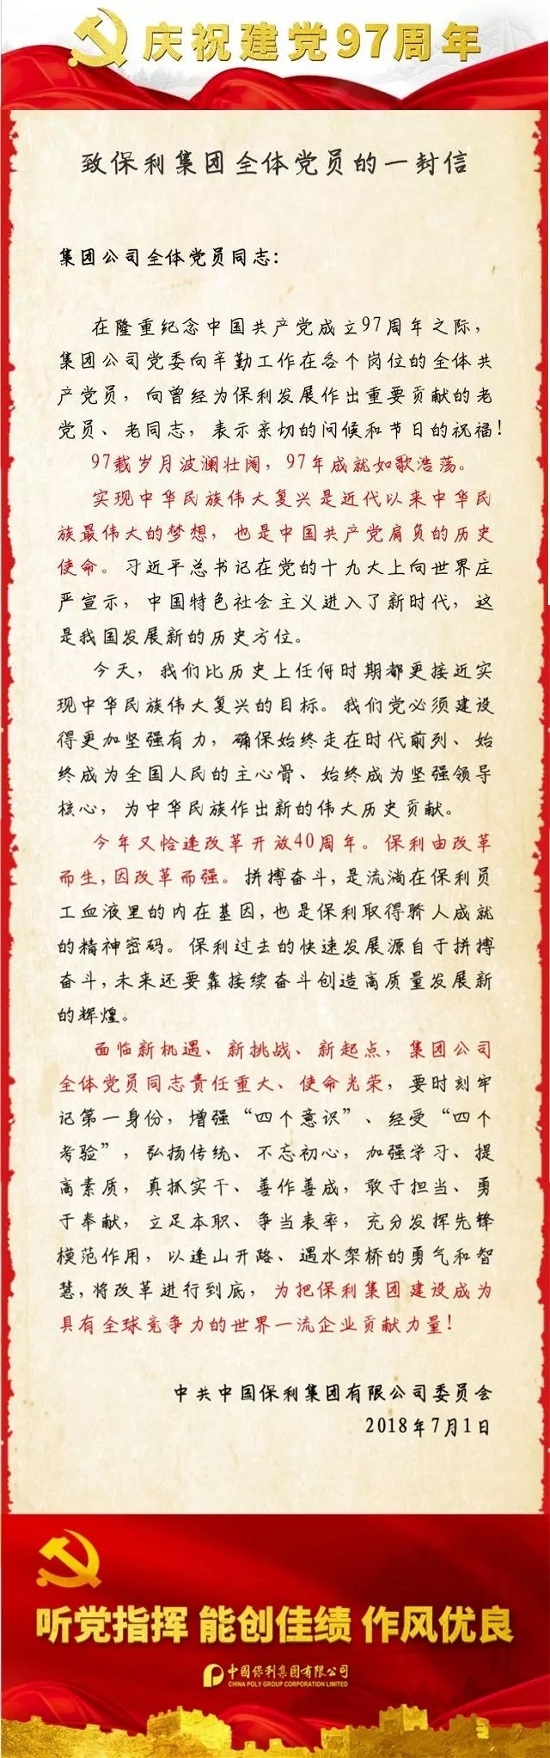 庆祝建党97周年
致保利集团全体党员的一封信
集团公司全体党员同志：
在隆重纪念中国共产党成立97周年之际，
集团公司党委向辛勤工作在各个岗位的全体共
产党员，向曾经为保利发展作出重要贡献的老
党员、老同志，表示亲切的问候和节日的祝福！
97载岁月波澜壮阔，97年成就如歌浩荡。
实现中华民族伟大复兴是近代以来中华民
族最伟大的梦想，也是中国共产党肩负的历史
使命。习近平总书记在党的十九大上向世界庄
严宣示，中国特色社会主义进入了新时代，这
是我国发展新的历史方位。
今天，我们比历史上任何时期都更接近实
现中华民族伟大复兴的目标。我们党必须建设
得更加坚强有力，确保始终走在时代前列、始
终成为全国人民的主心骨、始终成为坚强领导
核心，为中华民族作出新的伟大历史贡献。
今年又恰逢改革开放40周年。保利由改革
而生，因改革而强。拼搏奋斗，是流淌在保利员
工血液里的内在基因，也是保利取得骄人成就
的精神密码。保利过去的快速发展源自于拼搏
奋斗，未来还要靠接续奋斗创造高质量发展新
的辉煌。
面临新机遇、新挑战、新起点，集团公司
全体党员同志责任重大、使命光荣，要时刻牢
记第一身份，增强“四个意识”、经受“四个
考验”，弘扬传统、不忘初心，加强学习、提
高素质，真抓实干、善作善成，敢于担当、勇
于奉献，立足本职、争当表率，充分发挥先锋
模范作用，以逢山开路、遇水架桥的勇气和智
慧，将改革进行到底，为把保利集团建设成为
具有全球竞争力的世界一流企业贡献力量！
中共中国保利集团有限公司委员会
2018年7月1日
听党指挥 能创佳绩 作风优良
中國保利集團有限公司
CHINA POLY GROUP CORPORATION LIMITED